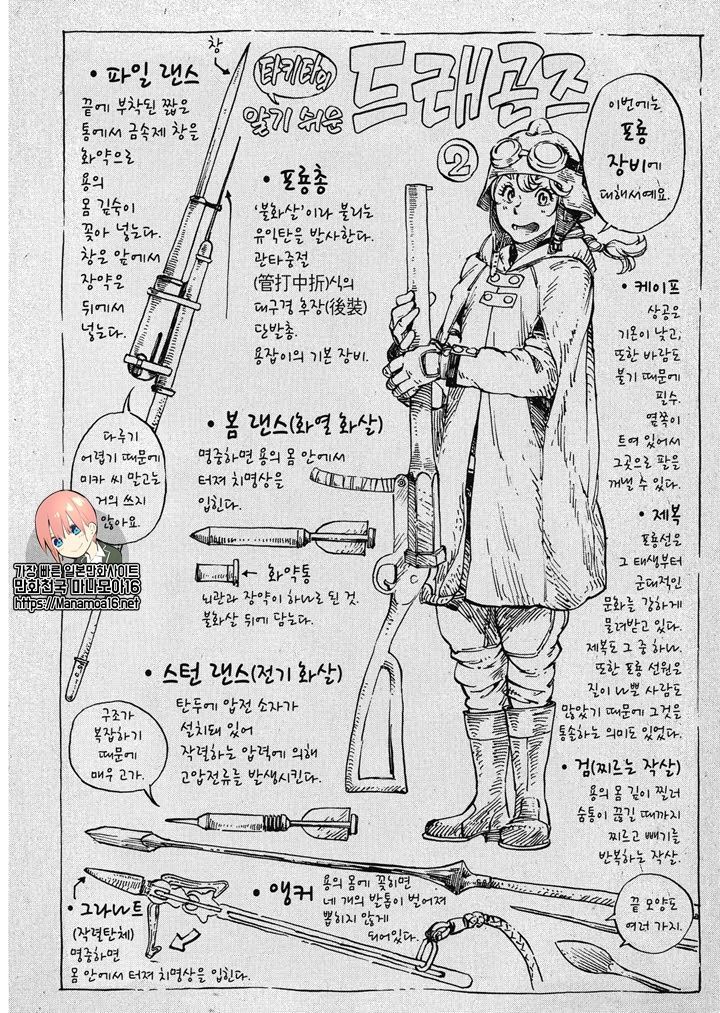 타키타의
알기 쉬운
드래곤즈
②
이번에는
포룡
장비에
대해서예요.
창
• 파일 랜스
끝에 부착된 짧은
통에서 금속제 창을
화약으로
용의
몸 깊숙이
꽂아 넣는다.
창은 앞에서
장약은
뒤에서
넣는다.
다루기
어렵기 때문에
미카 씨 말고는
거의 쓰지
않아요.
• 포룡총
'불화살'이라 불리는
유익탄을 발사한다.
관타중절
(管打中折)식의
대구경 후장(後裝)
단발총.
용잡이의 기본 장비.
• 케이프
상공은
기온이 낮고,
또한 바람도
불기 때문에
필수.
옆쪽이
트여 있어서
그곳으로 팔을
꺼낼 수 있다.
• 봄 랜스(화열 화살)
명중하면 용의 몸 안에서
터져 치명상을
입힌다.
화약통
뇌관과 장약이 하나로 된 것.
불화살 뒤에 담는다.
• 제복
포룡선은
그 태생부터
군대적인
문화를 강하게
물려받고 있다.
제복도 그 중 하나.
또한 포룡 선원은
질이 나쁠 사람도
많았기 때문에 그것을
통솔하는 의미도 있었다.
가장 빠른 일본만화사이트
만화천국 마나모아16
https://Manamoa16.net
• 스턴 랜스(전기 화살)
탄두에 압전 소자가
설치돼 있어
작렬하는 압력에 의해
고압전류를 발생시킨다.
구조가
복잡하기
때문에
매우 고가.
• 검(찌르는 작살)
용의 몸 깊이 찔러
숨통이 끊길 때까지
찌르고 빼기를
반복하는 작살.
끝 모양도
여러 가지.
• 앵커
용의 몸에 꽂히면
네 개의 발톱이 벌어져
뽑히지 않게
되어있다.
• 그라나트
(작렬탄체)
명중하면
몸 안에서 터져 치명상을 입힌다.
C